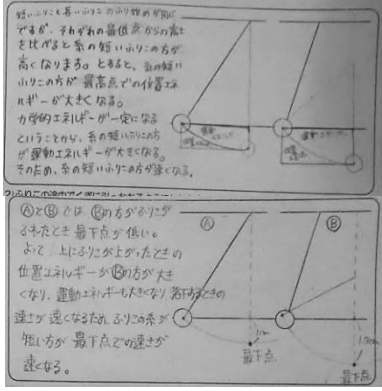 短いふりこと長いふりこのふり始めが同じ
ですが、それぞれの最低点からの高さ
を比べると糸の短いふりこの方が
高くなります。とすると、糸の短い
ふりこの方が最高点での位置エネ
ルギーが大きくなる。
力学的エネルギーが一定になる
ということから、糸の短いふりこの方
が運動エネルギーが大きくなる。
そのため、糸の短いふりこの方が速くなる。
ⒶとⒷでは Ⓑの方がふりこが
ふれたとき 最下点が低い。
よって 上にふりこが上がったときの
位置エネルギーがⒷの方が大き
くなり、運動エネルギーも大きくなり 落下するときの
速さが速くなるため、ふりこの糸が
短い方が最下点での速さが
速くなる。
Ⓐ
Ⓑ
最下点
最下点